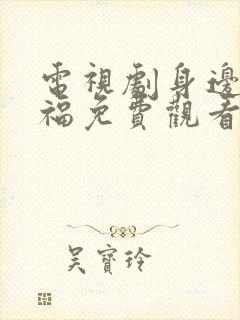 電視劇身邊
福免費觀看
吳寶玲